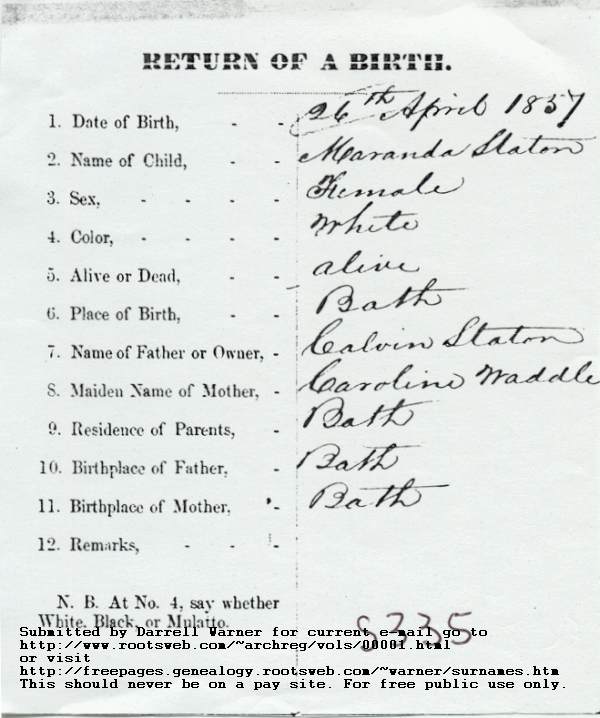 RETURN OF A BIRTH.
1. Date of Birth, - - 26th April 1857
2. Name of Child, - - Maranda Staton
3. Sex, - - - - Female
4. Color, - - - - White
5. Alive or Dead, - - alive
6. Place of Birth, - - Bath
7. Name of Father or Owner, - Calvin Staton
8. Maiden Name of Mother, - Caroline Waddle
9. Residence of Parents, - Bath
10. Birthplace of Father, - Bath
11. Birthplace of Mother, - Bath
12. Remarks, - - -
N. B. At No. 4, say whether
White, Black, or Mulatto.
8335
Submitted by Darrell Warner for current e-mail go to
http://www.rootsweb.com/~archreg/vols/00001.html
or visit
http://freepages.genealogy.rootsweb.com/~warner/surnames.htm
This should never be on a pay site. For free public use only.